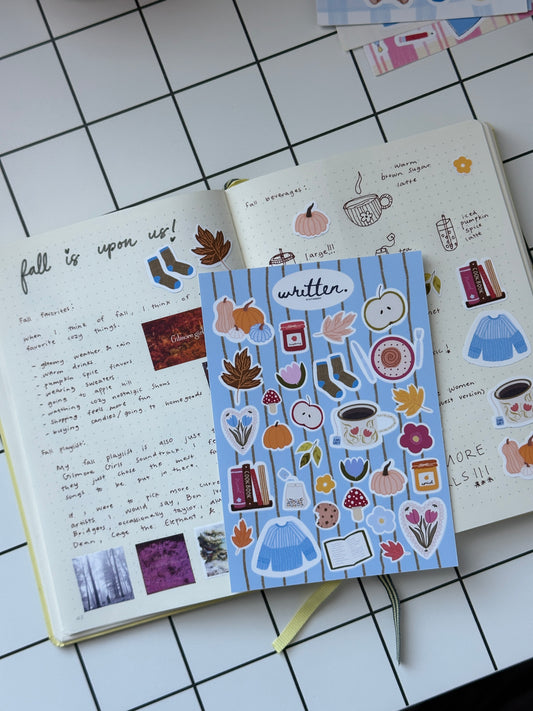 fall is upon us!
Fall favorites:
when I think of fall, I think of
favorite cozy things.
- gloomy weather & rain
- warm drinks
- pumpkin spice flavor
- wearing sweaters
- going to apple hill
- watching cozy nostalgic shows
- shopping feels more fun
- buying candles/going to homegoods
Gilmore Girls
Fall playlist:
My fall playlist is also just
Gilmore Girls soundtrack.
they just chose the most
songs to be put in there.
If I were to pick more
artists, I would say Bon
Bridges, occasionally Taylor,
Dean, Cage the Elephant,
Fall beverages:
warm
brown sugar
latte
large!!!
iced
pumpkin
spice
latte
Women
best version)
MORE
LS!!!
written.
COOK BOOK